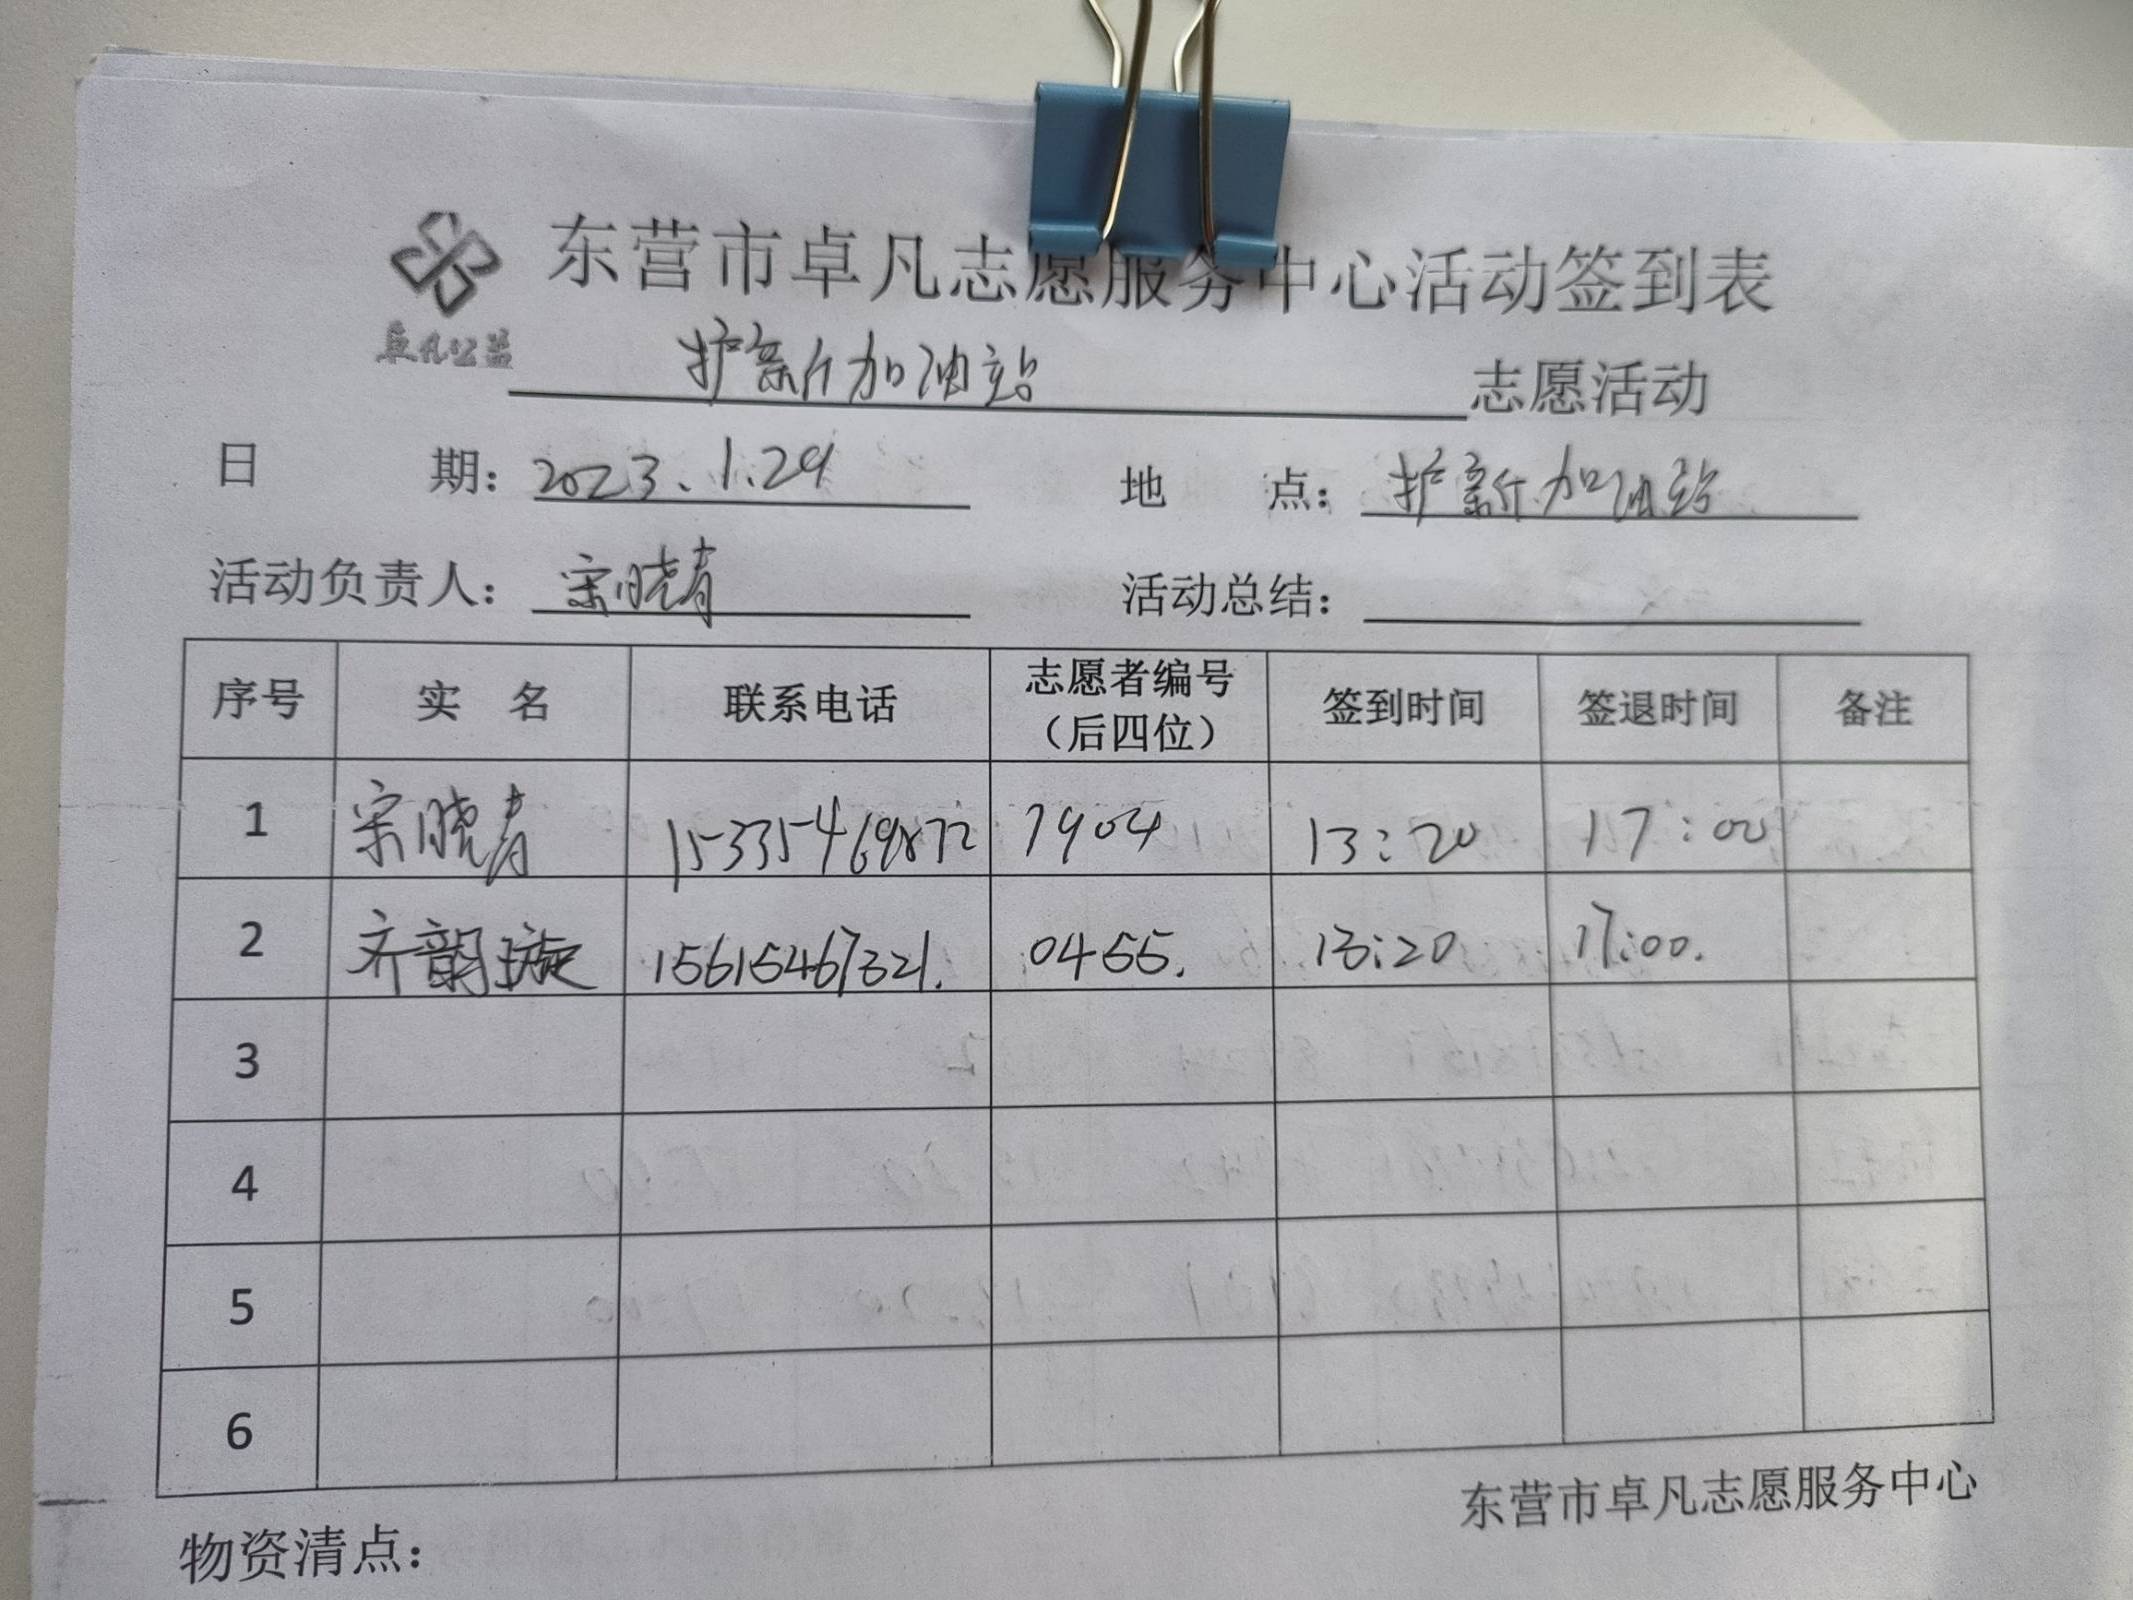 东营市卓凡志愿服务中心活动签到表
卓凡公益
护新加油站 志愿活动
日 期: 2023.1.29 地 点: 护新加油站
活动负责人: 宋晓青 活动总结:
序号 实 名 联系电话 志愿者编号(后四位) 签到时间 签退时间 备注
1 宋晓青 15335469872 7904 13:20 17:00
2 齐韵璇 15615467321. 0455. 13:20 17:00.
3
4
5
6
东营市卓凡志愿服务中心
物资清点: